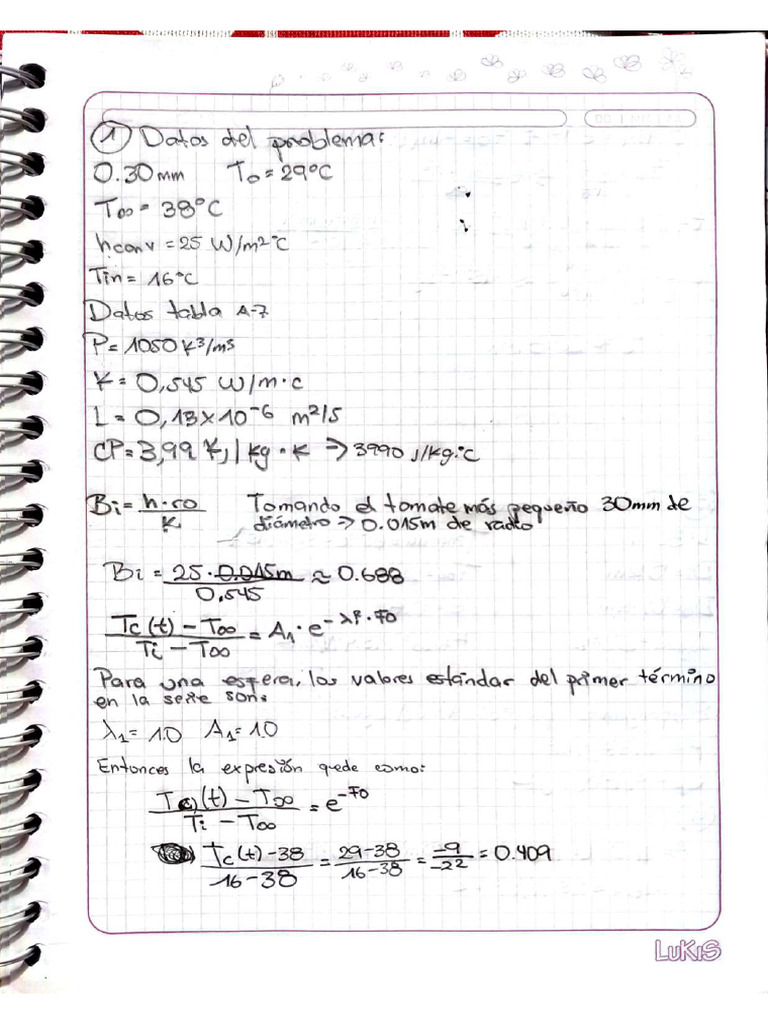 ① Datos del problema:
0.30mm T₀ = 29°C
T∞ = 38°C
hconv = 25 W/m²°C
Tin = 16°C
Datos tabla A-7
P = 1050 K³/m³
K = 0,545 W/m·c
L = 0,13×10⁻⁶ m²/s
CP = 3,99 KJ/kg·K ⇒ 3990 J/kg·°C
Bi = h·ro / k Tomando el tomate más pequeño 30mm de
diámetro ⇒ 0.015m de radio
Bi = 25·0.015m / 0.545 ≈ 0.688
Tc(t) – T∞ / Ti – T∞ = A₁·e^(-λ²·Fo)
Para una esfera, los valores estándar del primer término
en la serie son:
λ₁ = 1.0 A₁ = 1.0
Entonces la expresión quede como:
Tc(t) – T∞ / Ti – T∞ = e^(-Fo)
Tc(t) – 38 / 16 – 38 = 29 – 38 / 16 – 38 = -9 / -22 = 0.409
LUKIS